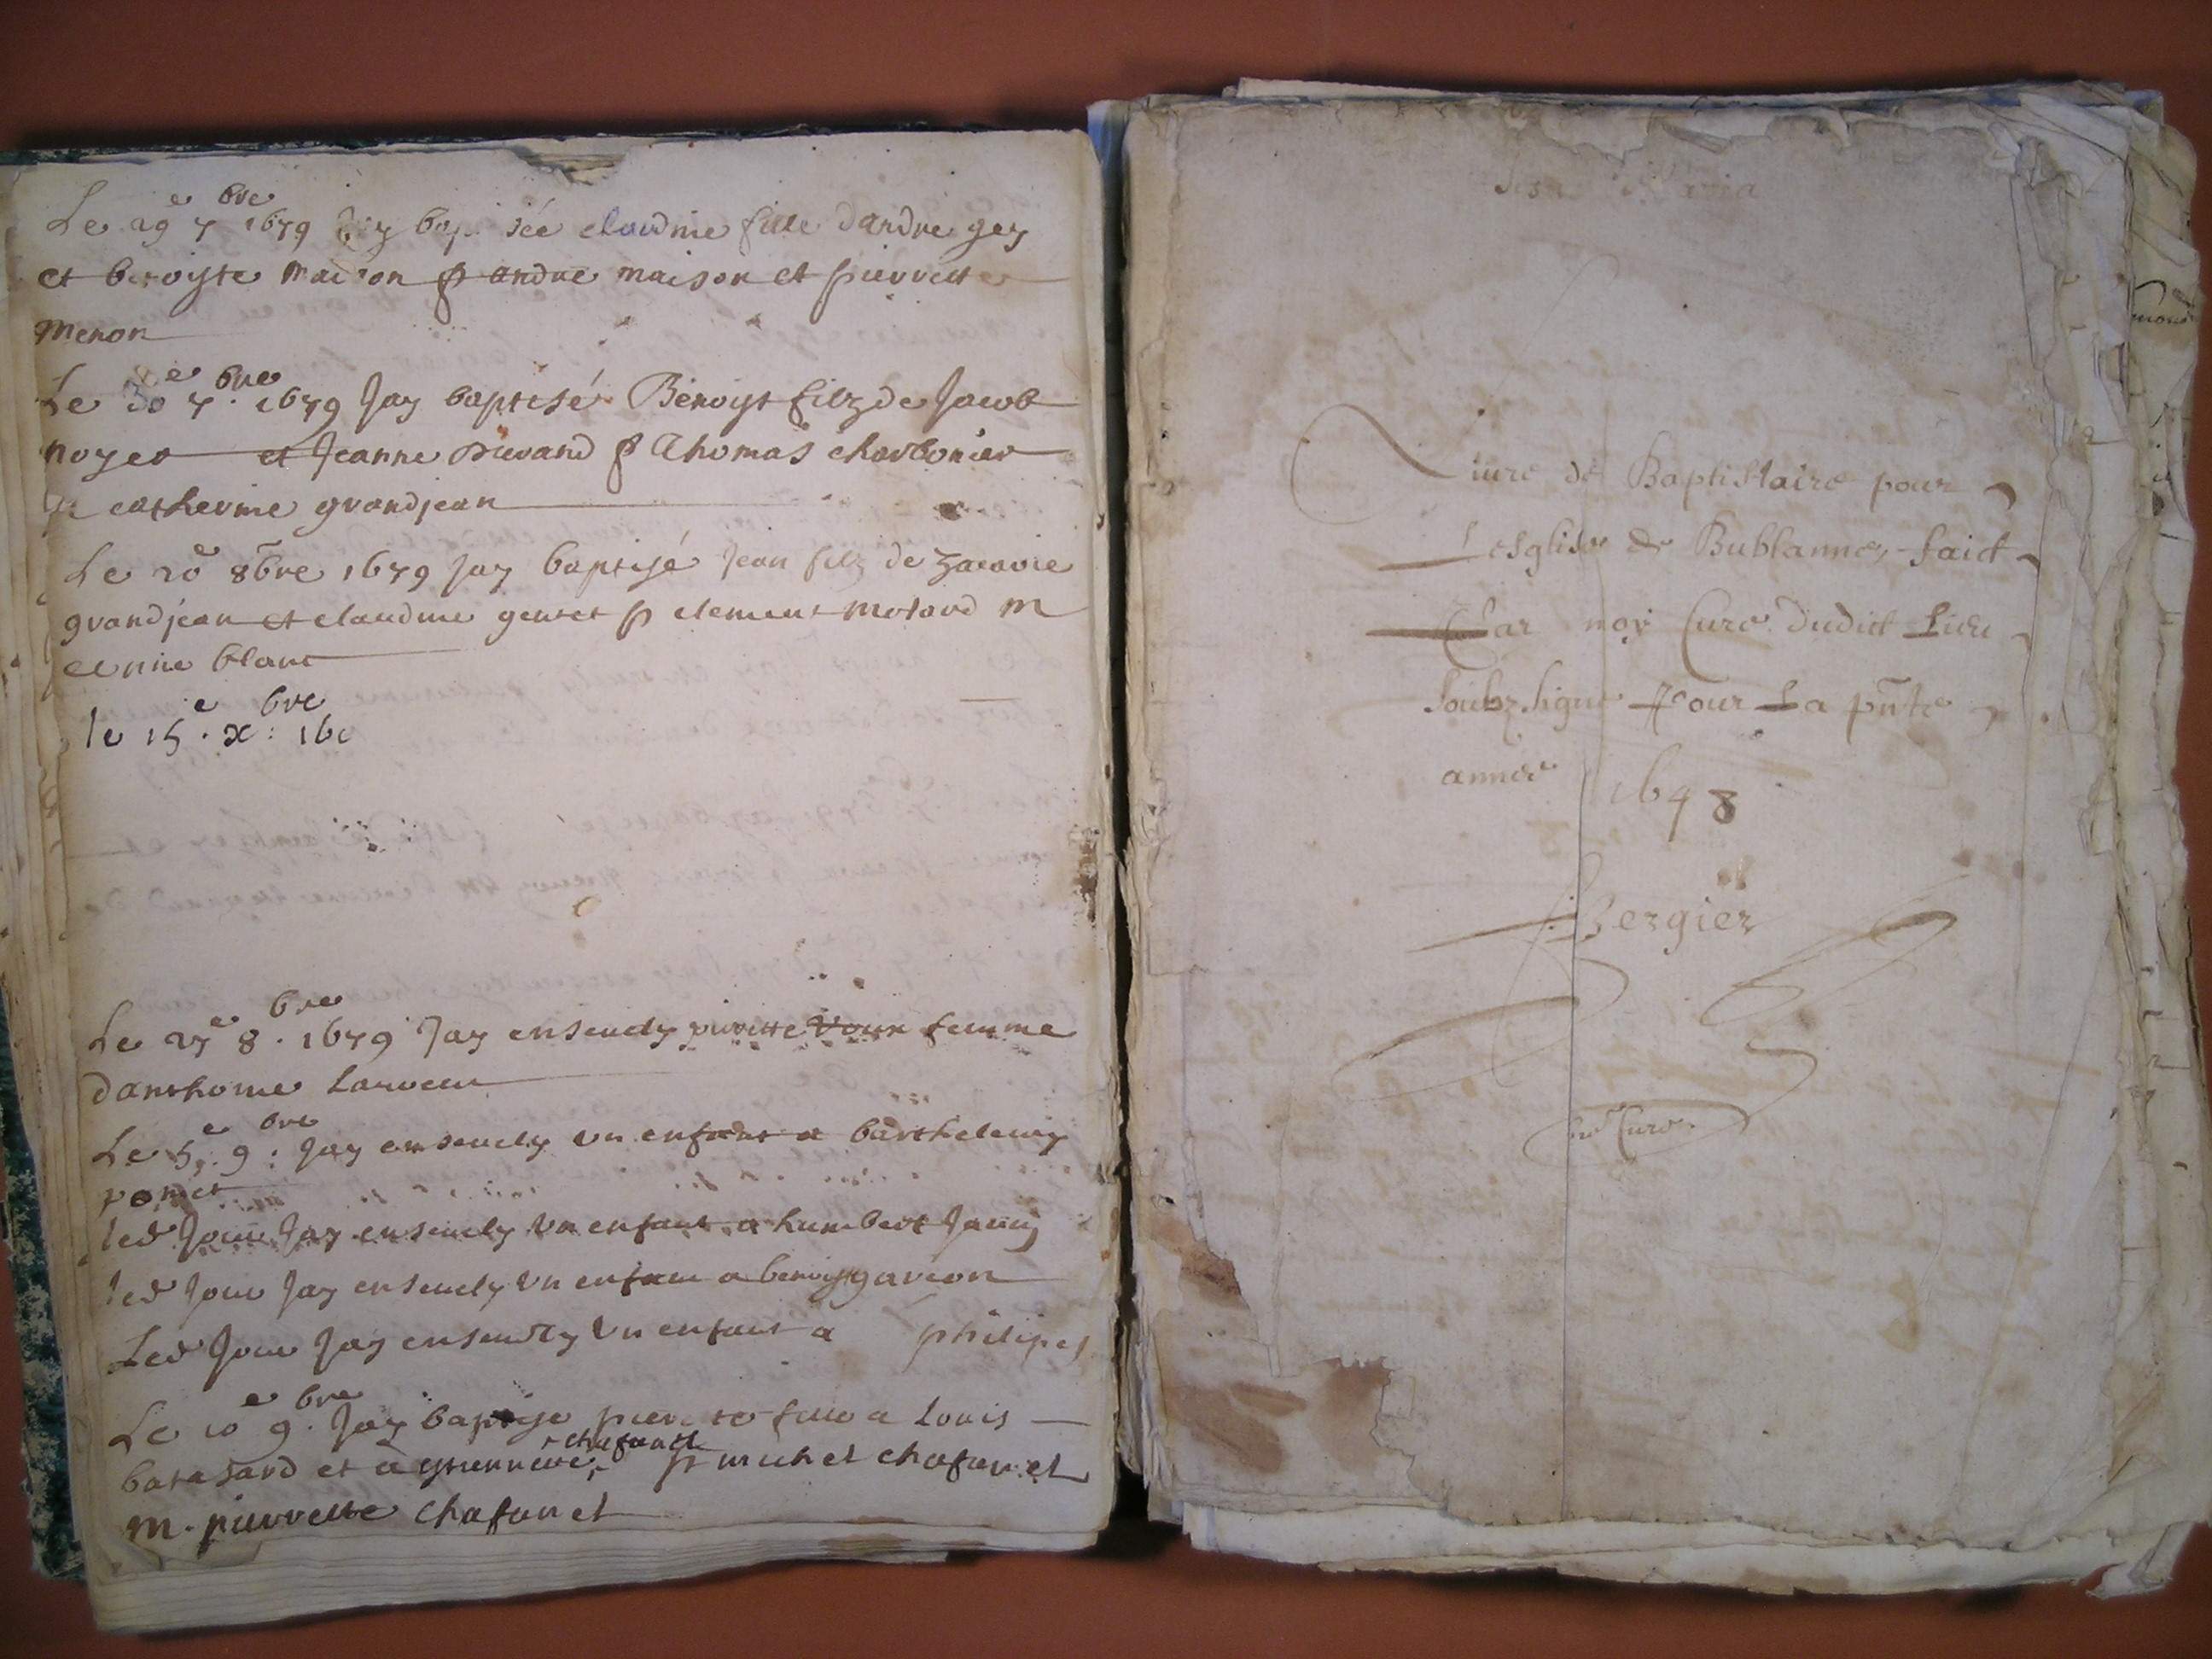 Le 29e 7bre 1679 Jay bap sée claudine fille dandre gey
et benoyste maison p andre maison et pierrette
menon
Le 30e 7bre 1679 Jay baptisé Benoyst filz de Jacob
noyer et Jeanne Durand p Thomas charbonier
catherine grandjean
Le 20e 8bre 1679 Jay baptisé Jean filz de zacarie
grandjean et claudine gentet p clement molard m
blanc
le 15e xbre 16
Le 27e 8bre 1679 Jay ensevely pierette femme
danthoine
Le 5e 9bre Jay ensevely un enfant a barthelemy
pomet
led Jour Jay ensevely un enfant a humbert Janin
led Jour Jay ensevely un enfant a benoyst garion
Led Jour Jay ensevely un enfant a philipes
Le 10e 9bre Jay baptise pierette fille a Louis
chafanel
batasard et a p michel chafanel
m. pierrette chafanel
Maria
Livre de Baptistaire pour
Lesglise de Bublanne faict
Par moy Curé dudict Lieu
soubzsigné Pour La pnte
année 1648
Bergier
Curé